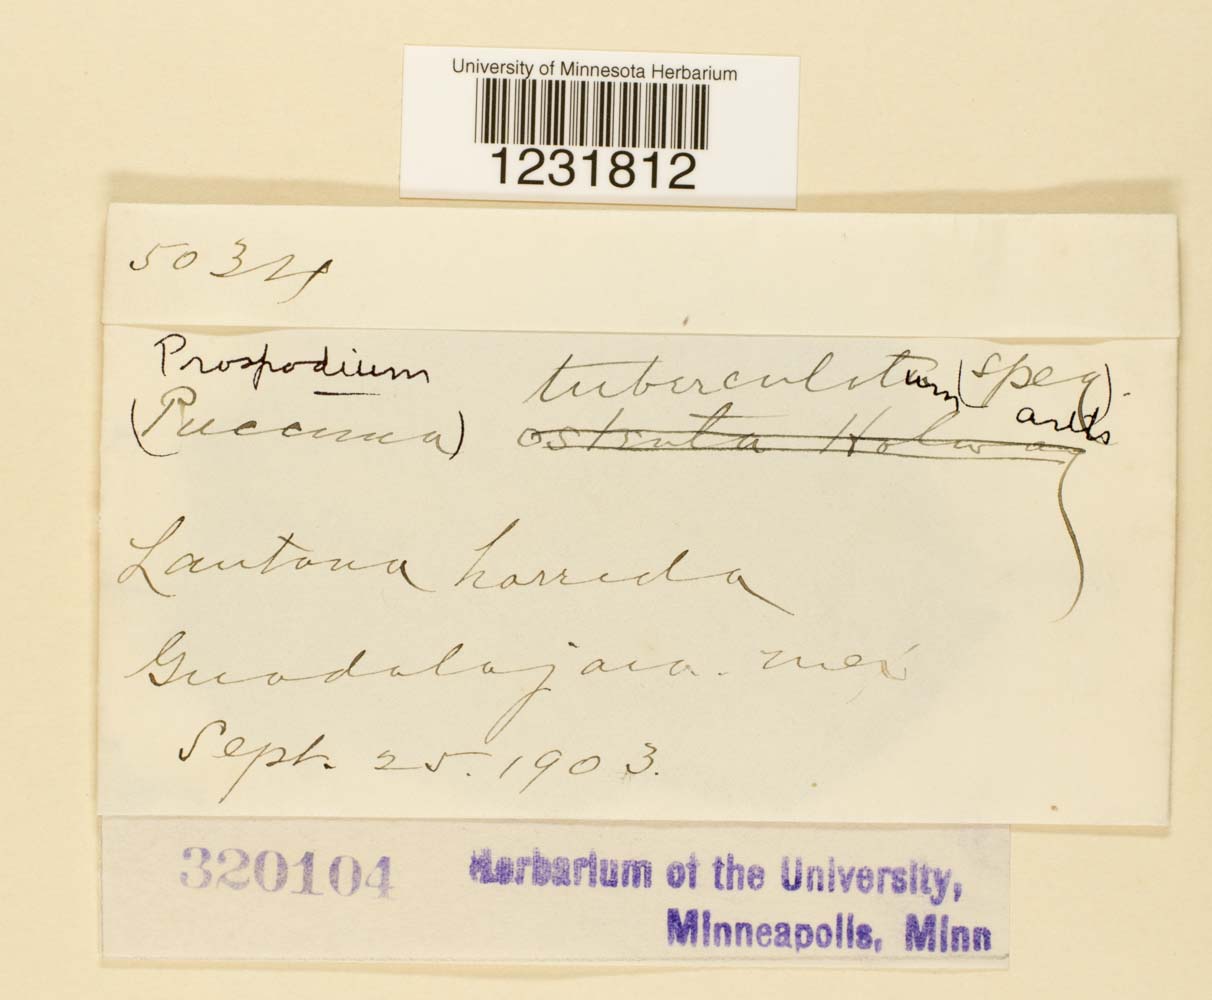 University of Minnesota Herbarium
1231812
5034
Prospodium tuberculatum (Speg).
Arth
(Puccinia) ostruta Holway
Lantana horrida
Guadalajara. Mex
Sept. 25. 1903.
320104 Herbarium of the University,
Minneapolis, Minn